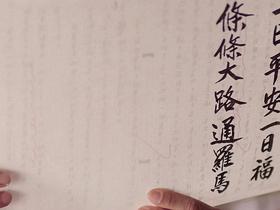 一日平安一日福
條條大路通羅馬